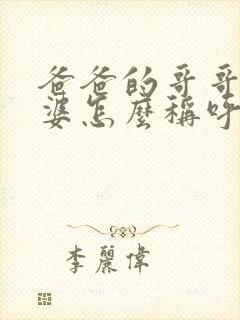 爸爸的哥哥
婆怎麼稱呼
李麗偉